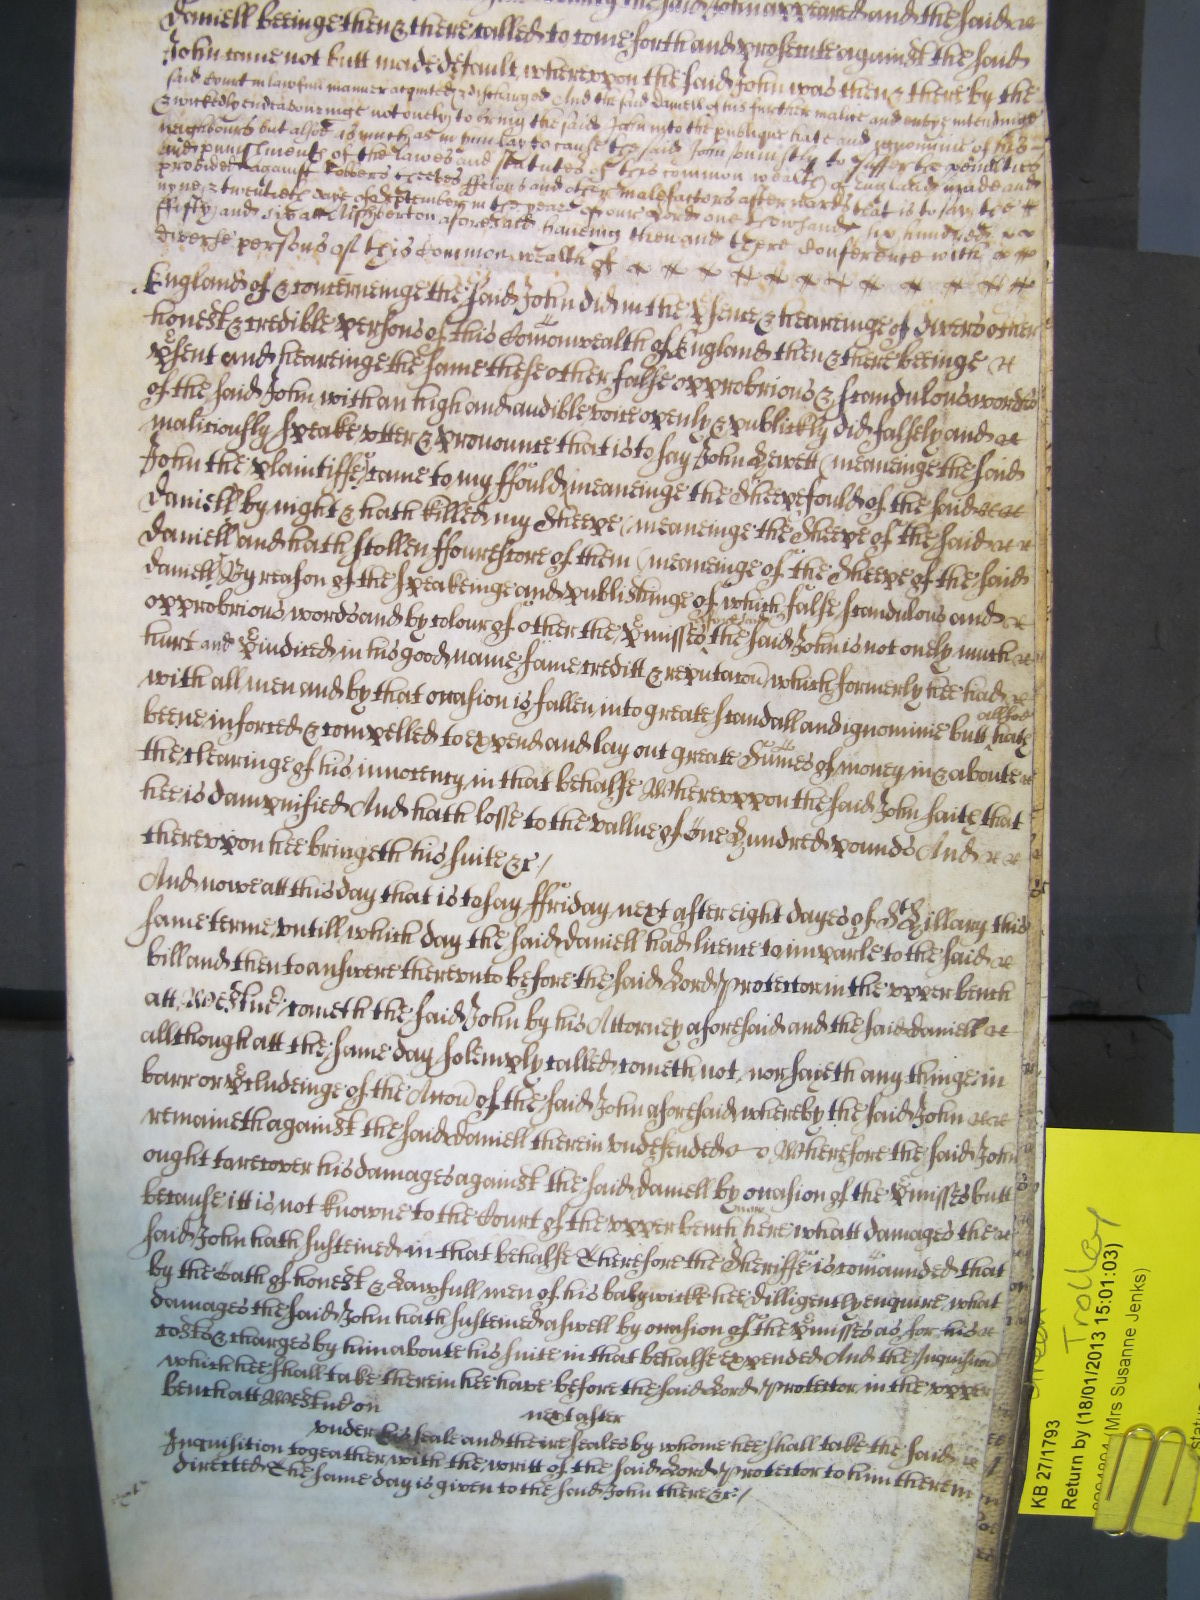 the said John appeared and the said
Daniell beeinge then & there called to come forth and prosecute against the said
John came not butt made default whereuppon the said John was then & there by the
said Court in lawfull manner acquited & discharged And the said Daniell of his further malice and envye intendinge
& wickedly endeabouringe not onely to bring the said John into the publique hate and ignominy of his
neighbours but alsoe as much as in him lay to cause the said John uniustly to suffer the penalties
and punishments of the lawes and statutes of this common wealth of England made and
provided against Robbers theeves ffelons and other malefactors afterwards that is to say the
nyne & twentieth daye of September in the yeare of our Lord one thowsand six hundred
ffifty and six att aforesaid haveing then and there Conference with
diverse persons of this Common wealth of
England of & concerneinge the said John did in the psence & heareinge of divers other
honest & credible persons of this Comonwealth of England then & there beeinge
psent and heareinge the same these other false opprobrious & scandulous words
of the said John with an high and audible voice openly & publickly did falsely and
maliciously speake utter & pronounce that is to say John Hewett (meaneinge the said
John the plaintiffe) came to my ffould meaneinge the Sheepefould of the said
Daniell by night & hath killed my Sheepe (meaneinge the Sheepe of the said
Daniell and hath stollen ffourescore of them (meaneinge of the Sheepe of the said
Daniell) By reason of the speakeinge and publishinge of which false scandulous and
opprobrious words and by colour of other the pmisses aforesaid the said John is not onely much
hurt and piudiced in his good name fame creditt & reputacon which formerly hee had
with all men and by that occasion is fallen into greate scandall and ignominie butt allsoe hath
beene inforced & compelled to expend and lay out great Sumes of money in & aboute
the clearinge of his innocency in that behalfe Whereuppon the said John saith that
hee is dampnified And hath losse to the vallue of One Hundred pounds And
thereuppon hee bringeth his suite &c /
And nowe att this day that is to say ffriday next after eight dayes of St Hillary this
same terme untill which day the said Daniell had licence to imparle to the said
bill and then to answere thereunto before the said Lord Protector in the upper bench
att Westmr cometh the said John by his Attorney aforesaid and the said Daniell
allthough att the same day solemply called cometh not nor sayeth any thinge in
barr or pcludeinge of the Accon of the said John aforesaid whereby the said John
remaineth against the said Daniell therein undefended Wherefore the said John
ought to recover his damages against the said Daniell by occasion of the pmisses butt
because itt is not knowne to the Court of the upper bench nowe here whatt damages the
said John hath susteined in that behalfe Therefore the Sheriffe is comaunded that
by the Oath of honest & Lawfull men of his balywicke hee dilligently enquire what
damages the said John hath susteined aswell by occasion of the pmisses as for his
costs & charges by him aboute his suite in that behalfe expended And the Inquisicon
which hee shall take therein hee have before the said Lord Protector in the upper
bench att Westmr on next after
under his seale and the seales by whome hee shall take the said
Inquisition togeather with the writt of the said Lord Protector to him therein
directed The same day is given to the said John there &c /
KB 27/1793
Return by (18/01/2013 15:01:03)
(Mrs Susanne Jenks)
Trolley